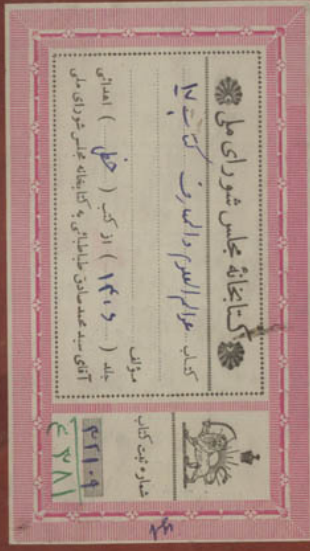 کتابخانه مجلس شورای ملی
کتاب عوالم العلوم والمعارف کتاب ۱۷
مؤلف
جلد (۱۴۰۶) از کتب (خطی) اهدائی
آقای سید محمد صادق طباطبائی به کتابخانه مجلس شورای ملی
شماره ثبت کتاب
۴۲۱۰۹
۴۳۸۱